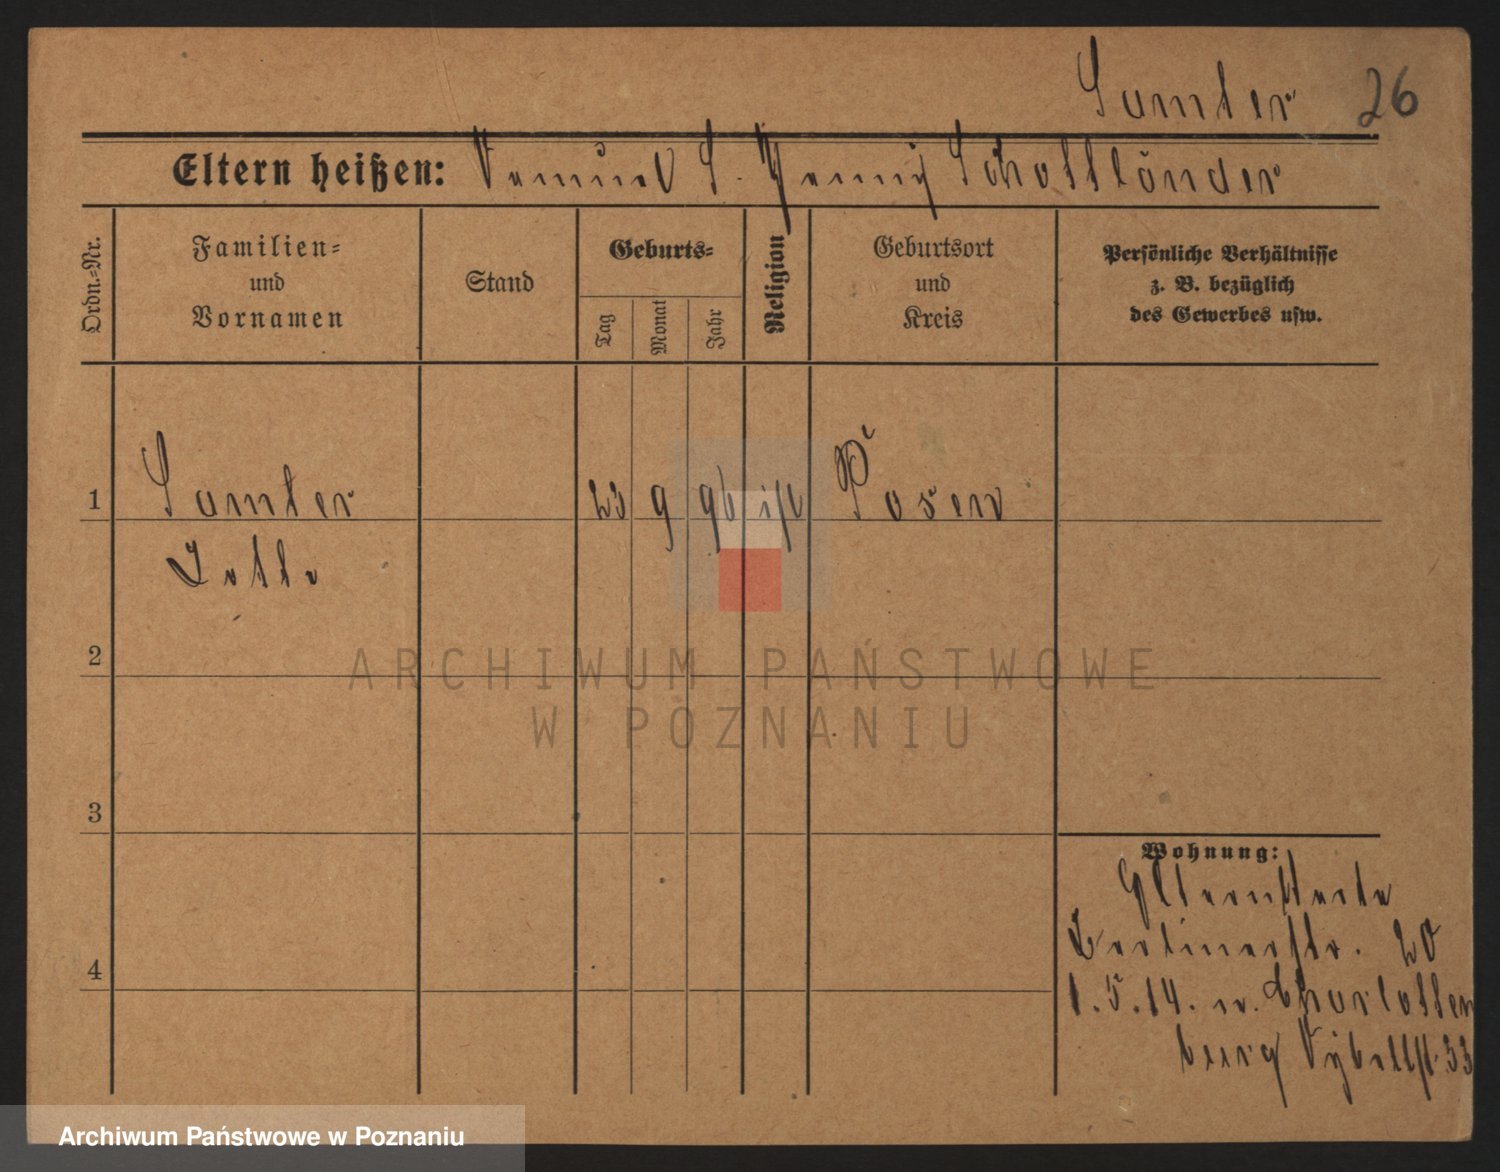 Samter 26
Eltern heißen: Samuel S. Henny Schottländer
Ordn.=Nr.
Familien=
und
Vornamen
Stand
Geburts=
Tag
Monat
Jahr
Religion
Geburtsort
und
Kreis
Persönliche Verhältnisse
z. B. bezüglich
des Gewerbes usw.
1 Samter 23 9 96 isr Posen
2
3
4
Wohnung:
Berlinerstr. 20
1.5.14. n. Charlotten
burg Sybelst. 33
ARCHIWUM PAŃSTWOWE
W POZNANIU
Archiwum Państwowe w Poznaniu